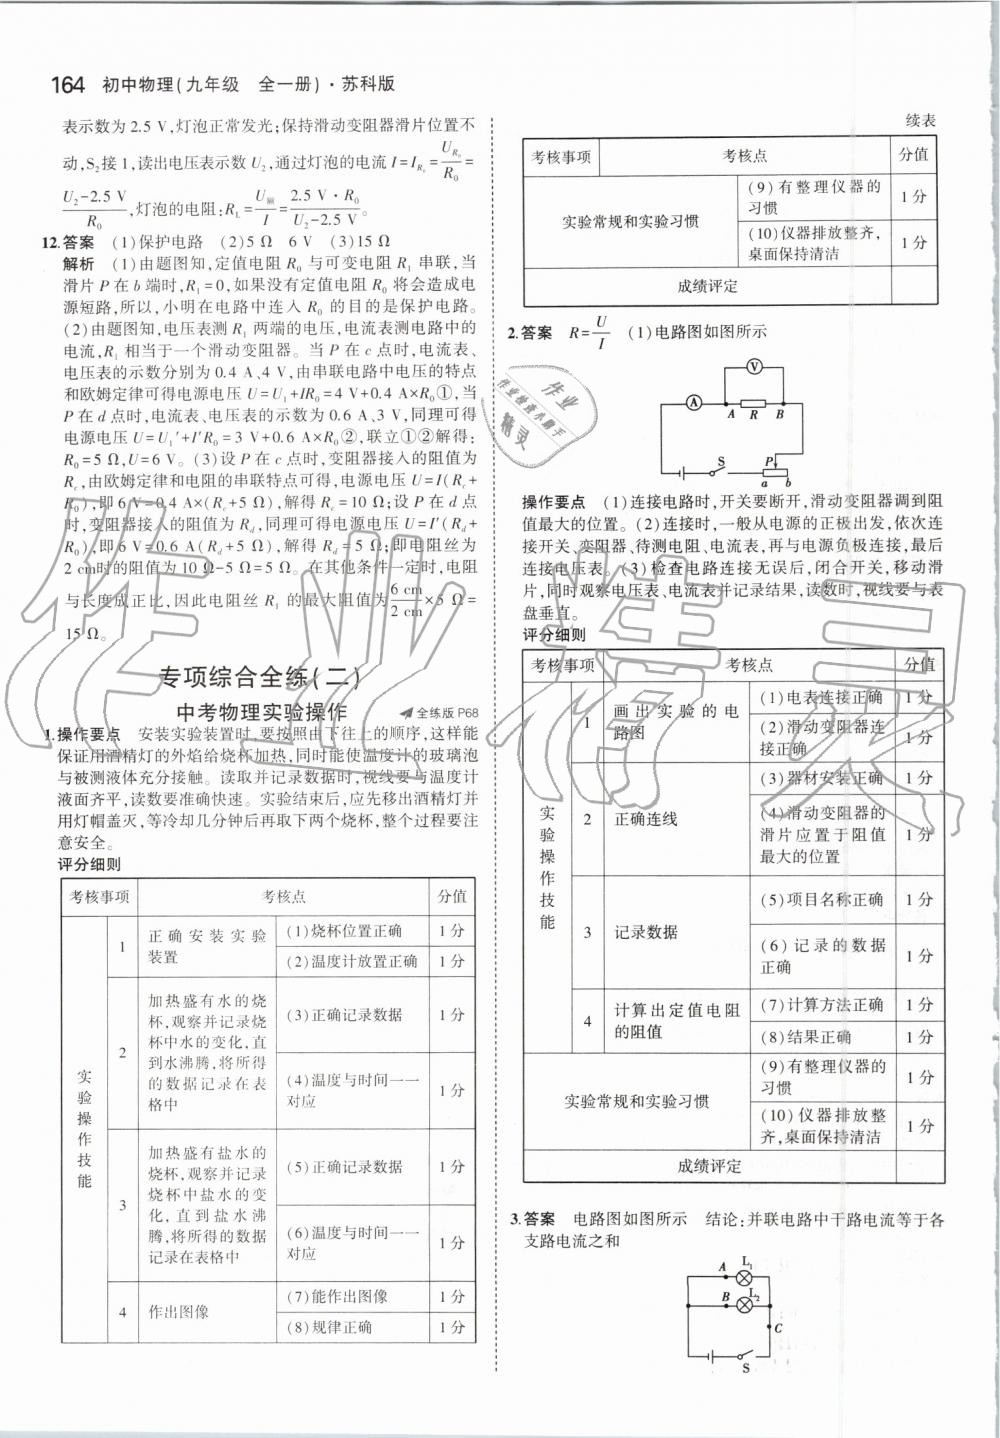 164 初中物理(九年级 全一册)·苏科版
表示数为 2.5 V,灯泡正常发光;保持滑动变阻器滑片位置不
动,S₂接 1,读出电压表示数 U₂,通过灯泡的电流 I=I_R₀=U_R₀/R₀=
(U₂-2.5 V)/R₀,灯泡的电阻:R_L=U额/I=(2.5 V·R₀)/(U₂-2.5 V)。
12.答案 (1)保护电路 (2)5 Ω 6 V (3)15 Ω
解析 (1)由题图知,定值电阻 R₀ 与可变电阻 R₁ 串联,当
滑片 P 在 b 端时,R₁=0,如果没有定值电阻 R₀ 将会造成电
源短路,所以,小明在电路中连入 R₀ 的目的是保护电路。
(2)由题图知,电压表测 R₁ 两端的电压,电流表测电路中的
电流,R₁ 相当于一个滑动变阻器。当 P 在 c 点时,电流表、
电压表的示数分别为 0.4 A、4 V,由串联电路中电压的特点
和欧姆定律可得电源电压 U=U₁+IR₀=4 V+0.4 A×R₀①,当
P 在 d 点时,电流表、电压表的示数为 0.6 A、3 V,同理可得
电源电压 U=U₁′+I′R₀=3 V+0.6 A×R₀②,联立①②解得:
R₀=5 Ω,U=6 V。(3)设 P 在 c 点时,变阻器接入的阻值为
R_c,由欧姆定律和电阻的串联特点可得,电源电压 U=I(R_c+
R₀),即 6 V=0.4 A×(R_c+5 Ω),解得 R_c=10 Ω;设 P 在 d 点
时,变阻器接入的阻值为 R_d,同理可得电源电压 U=I′(R_d+
R₀),即 6 V=0.6 A(R_d+5 Ω),解得 R_d=5 Ω;即电阻丝为
2 cm时的阻值为 10 Ω-5 Ω=5 Ω。在其他条件一定时,电阻
与长度成正比,因此电阻丝 R₁ 的最大阻值为6 cm/2 cm×5 Ω=
15 Ω。
专项综合全练(二)
中考物理实验操作 全练版 P68
1.操作要点 安装实验装置时,要按照由下往上的顺序,这样能
保证用酒精灯的外焰给烧杯加热,同时能使温度计的玻璃泡
与被测液体充分接触。读取并记录数据时,视线要与温度计
液面齐平,读数要准确快速。实验结束后,应先移出酒精灯并
用灯帽盖灭,等冷却几分钟后再取下两个烧杯,整个过程要注
意安全。
评分细则
考核事项 考核点 分值
实验操作技能
1 正确安装实验
装置
(1)烧杯位置正确 1 分
(2)温度计放置正确 1 分
2 加热盛有水的烧
杯,观察并记录烧
杯中水的变化,直
到水沸腾,将所得
的数据记录在表
格中
(3)正确记录数据 1 分
(4)温度与时间一一
对应 1 分
3 加热盛有盐水的
烧杯,观察并记录
烧杯中盐水的变
化,直到盐水沸
腾,将所得的数据
记录在表格中
(5)正确记录数据 1 分
(6)温度与时间一一
对应 1 分
4 作出图像
(7)能作出图像 1 分
(8)规律正确 1 分
续表
考核事项 考核点 分值
实验常规和实验习惯
(9)有整理仪器的
习惯 1 分
(10)仪器排放整齐,
桌面保持清洁 1 分
成绩评定
2.答案 R=U/I (1)电路图如图所示
V
A A R B
S P
a b
操作要点 (1)连接电路时,开关要断开,滑动变阻器调到阻
值最大的位置。(2)连接时,一般从电源的正极出发,依次连
接开关、变阻器、待测电阻、电流表,再与电源负极连接,最后
连接电压表。(3)检查电路连接无误后,闭合开关,移动滑
片,同时观察电压表、电流表并记录结果,读数时,视线要与表
盘垂直。
评分细则
考核事项 考核点 分值
实验操作技能
1 画出实验的电
路图
(1)电表连接正确 1 分
(2)滑动变阻器连
接正确 1 分
2 正确连线
(3)器材安装正确 1 分
(4)滑动变阻器的
滑片应置于阻值
最大的位置 1 分
3 记录数据
(5)项目名称正确 1 分
(6)记录的数据
正确 1 分
4 计算出定值电阻
的阻值
(7)计算方法正确 1 分
(8)结果正确 1 分
实验常规和实验习惯
(9)有整理仪器的
习惯 1 分
(10)仪器排放整
齐,桌面保持清洁 1 分
成绩评定
3.答案 电路图如图所示 结论:并联电路中干路电流等于各
支路电流之和
A L₁
B L₂
C
S
作业精灵
作业
作业检查小帮手
精灵